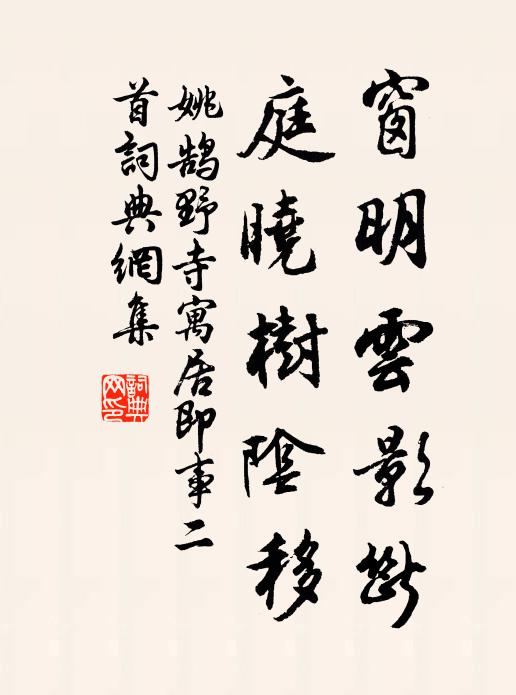 窗明雲影斷
庭曉樹陰移
姚鵠野寺寓居即事二
首詞典網集
詞典
网印